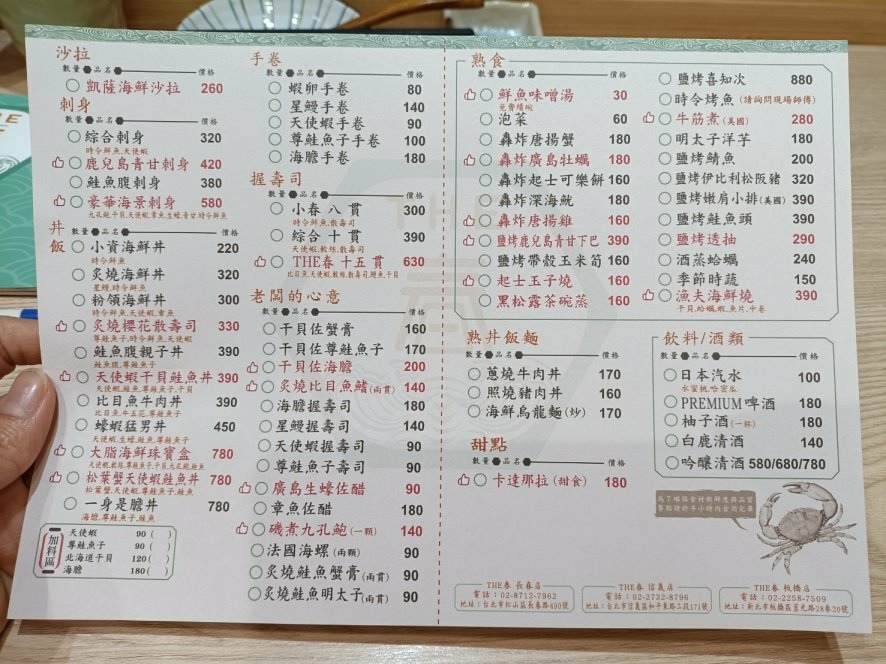 沙拉
數量 品名 價格
凱薩海鮮沙拉 260
刺身
數量 品名 價格
綜合刺身 320
時令鮮魚,天使蝦
鹿兒島青甘刺身 420
鮭魚腹刺身 380
豪華海景刺身 580
九孔鮑,干貝,天使蝦,章魚,生蠔,青甘,時令鮮魚
丼飯
數量 品名 價格
小資海鮮丼 220
時令鮮魚
炙燒海鮮丼 320
星鰻,時令鮮魚
粉領海鮮丼 300
時令鮮魚,天使蝦,章魚
炙燒櫻花散壽司 330
尊鮭魚子,時令鮮魚,天使蝦
鮭魚腹親子丼 390
鮭魚腹,尊鮭魚子
天使蝦干貝鮭魚丼 390
天使蝦,鮭魚,尊鮭魚子,干貝
比目魚牛肉丼 390
比目魚,牛五花,尊鮭魚子
蠔蝦猛男丼 450
天使蝦,生蠔,鮭魚,尊鮭魚子
大脂海鮮珠寶盒 780
松葉蟹天使蝦鮭魚丼 780
松葉蟹,天使蝦,鮭魚,尊鮭魚子
一身是膽丼 780
海膽,尊鮭魚子,鮭魚
加料區
天使蝦 90 ( )
尊鮭魚子 90 ( )
北海道干貝 120 ( )
海膽 180 ( )
手卷
數量 品名 價格
蝦卵手卷 80
星鰻手卷 140
天使蝦手卷 90
尊鮭魚子手卷 100
海膽手卷 180
握壽司
數量 品名 價格
小春 八 貫 300
時令鮮魚,散壽司
綜合 十 貫 390
天使蝦,軟絲,散壽司
THE春 十五 貫 630
比目魚,天使蝦,軟絲,散壽司,鰻魚,干貝
老闆的心意
數量 品名 價格
干貝佐蟹膏 160
干貝佐尊鮭魚子 170
干貝佐海膽 200
炙燒比目魚鰭(兩貫) 140
海膽握壽司 180
星鰻握壽司 140
天使蝦握壽司 90
尊鮭魚子壽司 90
廣島生蠔佐醋 90
章魚佐醋 180
磯煮九孔鮑(一顆) 140
法國海螺(兩顆) 90
炙燒鮭魚蟹膏(兩貫) 90
炙燒鮭魚明太子(兩貫) 90
熟食
數量 品名 價格
鮮魚味噌湯 30
免費續碗
泡菜 60
轟炸唐揚蟹 180
轟炸廣島牡蠣 180
轟炸起士可樂餅 160
轟炸深海魷 180
轟炸唐揚雞 160
鹽烤鹿兒島青甘下巴 390
鹽烤帶殼玉米筍 160
起士玉子燒 160
黑松露茶碗蒸 160
鹽烤喜知次 880
時令烤魚(請詢問現場師傅)
牛筋煮(美國) 280
明太子洋芋 180
鹽烤鯖魚 200
鹽烤伊比利松阪豬 320
鹽烤嫩肩小排(美國) 390
鹽烤鮭魚頭 390
鹽烤透抽 290
酒蒸蛤蠣 240
季節時蔬 150
漁夫海鮮燒 390
干貝,蛤蠣,蝦,魚片,中卷
熟丼飯麵
數量 品名 價格
蔥燒牛肉丼 170
照燒豬肉丼 160
海鮮烏龍麵(炒) 170
甜點
數量 品名 價格
卡達那拉(甜食) 180
飲料/酒類
數量 品名 價格
日本汽水 100
水蜜桃,哈密瓜
PREMIUM啤酒 180
柚子酒(一杯) 180
白鹿清酒 140
吟釀清酒 580/680/780
為了確保食材新鮮度與品質
餐點請於半小時內食用完畢
THE春 長春店
電話：02-8712-7962
地址：台北市松山區長春路490號
THE春 信義店
電話：02-2732-8796
地址：台北市信義區和平東路三段171號
THE春 板橋店
電話：02-2258-7509
地址：新北市板橋區莒光路28巷20號